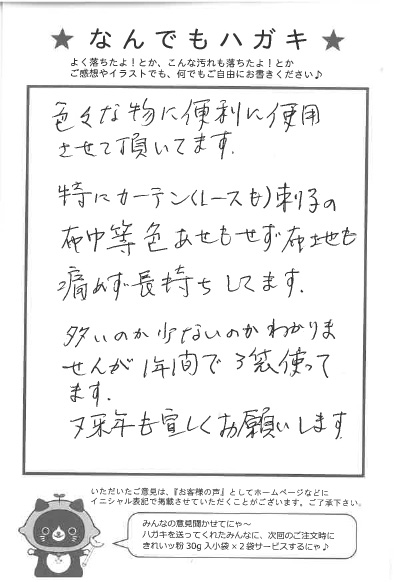 ★ なんでもハガキ ★
よく落ちたよ！とか、こんな汚れも落ちたよ！とか
ご感想やイラストでも、何でもご自由にお書きください♪
色々な物に便利に使用
させて頂いてます.
特にカーテン(レースも)刺子の
布巾等色あせもせず布地も
痛めず長持ちしてます.
多いのか少ないのかわかりま
せんが1年間で3袋使って
ます.
又来年も宜しくお願いします
いただいたご意見は、『お客様の声』としてホームページなどに
イニシャル表記で掲載させていただくことがございます。ご了承下さい。
みんなの意見聞かせてにゃ～
ハガキを送ってくれたみんなに、次回のご注文時に
きれいッ粉 30g 入小袋×２袋サービスするにゃ♪